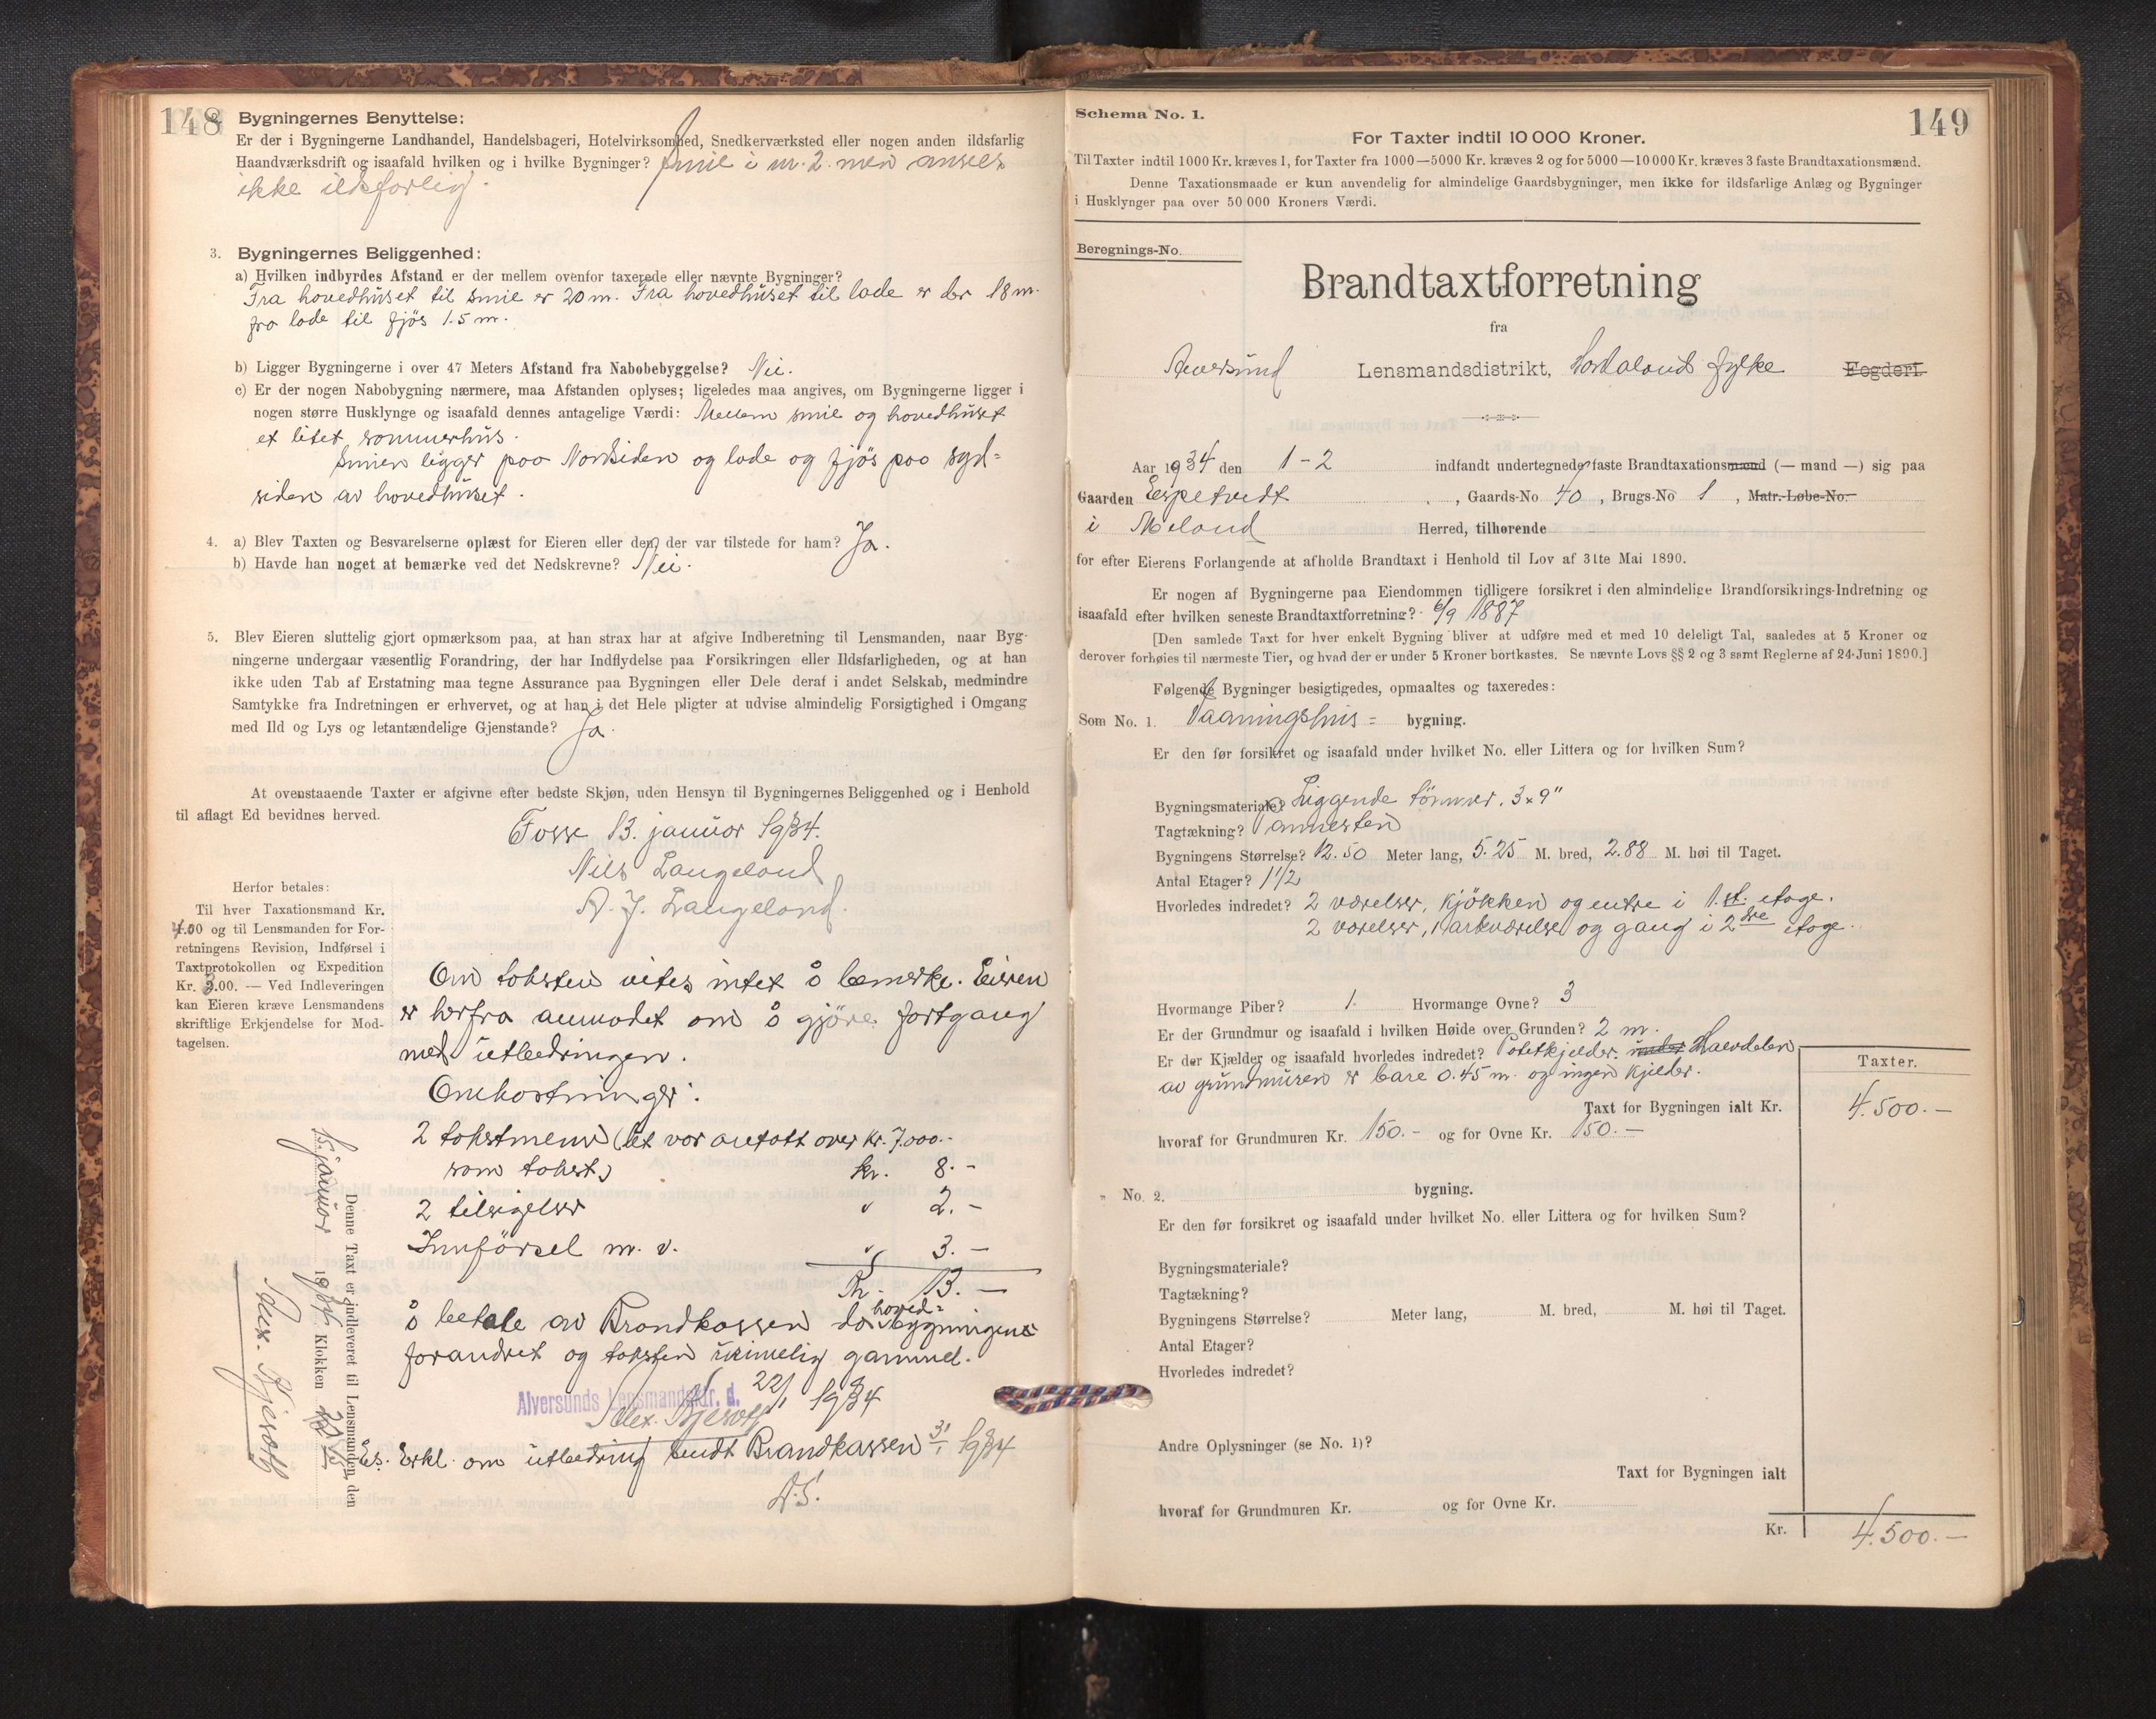 148
Bygningernes Benyttelse:
Er der i Bygningerne Landhandel, Handelsbageri, Hotelvirksomhed, Snedkerværksted eller nogen anden ildsfarlig
Haandværksdrift og isaafald hvilken og i hvilke Bygninger? Smie i nr. 2. men ansees
ikke ildsfarlig.
3. Bygningernes Beliggenhed:
a) Hvilken indbyrdes Afstand er der mellem ovenfor taxerede eller nævnte Bygninger?
Fra hovedhuset til smie er 20 m. Fra hovedhuset til lade er der 18 m.
fra lade til fjös 1.5 m.
b) Ligger Bygningerne i over 47 Meters Afstand fra Nabobebyggelse? Nei.
c) Er der nogen Nabobygning nærmere, maa Afstanden oplyses; ligeledes maa angives, om Bygningerne ligger i
nogen større Husklynge og isaafald dennes antagelige Værdi: Mellem smie og hovedhuset
et litet sommerhus.
Smien ligger paa Nordsiden og lade og fjös paa syd=
siden av hovedhuset.
4. a) Blev Taxten og Besvarelserne oplæst for Eieren eller den, der var tilstede for ham? Ja.
b) Havde han noget at bemærke ved det Nedskrevne? Nei.
5. Blev Eieren sluttelig gjort opmærksom paa, at han strax har at afgive Indberetning til Lensmanden, naar Byg-
ningerne undergaar væsentlig Forandring, der har Indflydelse paa Forsikringen eller Ildsfarligheden, og at han
ikke uden Tab af Erstatning maa tegne Assurance paa Bygningen eller Dele deraf i andet Selskab, medmindre
Samtykke fra Indretningen er erhvervet, og at han i det Hele pligter at udvise almindelig Forsigtighed i Omgang
med Ild og Lys og letantændelige Gjenstande? Ja.
At ovenstaaende Taxter er afgivne efter bedste Skjøn, uden Hensyn til Bygningernes Beliggenhed og i Henhold
til aflagt Ed bevidnes herved.
Fosse 13. januar 1934.
Nils Langeland
A. J. Langeland.
Herfor betales:
Til hver Taxationsmand Kr.
4.00 og til Lensmanden for For-
retningens Revision, Indførsel i
Taxtprotokollen og Expedition
Kr. 3.00. — Ved Indleveringen
kan Eieren kræve Lensmandens
skriftlige Erkjendelse for Mod-
tagelsen.
Om taksten vites intet å bemerke. Eieren
er herfra anmodet om å gjöre fortgang
med utbedringen.
Omkostninger:
2 takstmenn (det var antatt over kr. 7.000.-
som takst) kr. 8.-
2 tilsigelser " 2.-
Innförsel m. v. " 3.-
Kr. 13.-
å betale av Brandkassen da hoved=bygningens
forandret og taksten rimelig gammel.
Alversunds Lensmandsktr. d. 22/1 1934
Alex. Bjerseth
Es. Erkl. om utbedring sendt Brandkassen 3/1 1934
Denne Taxt er indleveret til Lensmanden, den
15. januar 1934 Klokken
Alex. Bjerseth
149
Schema No. 1.
For Taxter indtil 10 000 Kroner.
Til Taxter indtil 1000 Kr. kræves 1, for Taxter fra 1000—5000 Kr. kræves 2 og for 5000—10000 Kr. kræves 3 faste Brandtaxationsmænd.
Denne Taxationsmaade er kun anvendelig for almindelige Gaardsbygninger, men ikke for ildsfarlige Anlæg og Bygninger
i Husklynger paa over 50 000 Kroners Værdi.
Beregnings-No.
Brandtaxtforretning
fra
Alversund Lensmandsdistrikt, Hordaland fylke Fogderi.
Aar 1934 den 1-2 indfandt undertegnede faste Brandtaxationsmænd (— mand —) sig paa
Gaarden Espetvedt, Gaards-No 40, Brugs-No 1, Matr.-Løbe-No.
i Meland Herred, tilhørende
for efter Eierens Forlangende at afholde Brandtaxt i Henhold til Lov af 31te Mai 1890.
Er nogen af Bygningerne paa Eiendommen tidligere forsikret i den almindelige Brandforsikrings-Indretning og
isaafald efter hvilken seneste Brandtaxtforretning? 6/9 1887
[Den samlede Taxt for hver enkelt Bygning bliver at udføre med et med 10 deleligt Tal, saaledes at 5 Kroner og
derover forhøies til nærmeste Tier, og hvad der er under 5 Kroner bortkastes. Se nævnte Lovs §§ 2 og 3 samt Reglerne af 24. Juni 1890.]
Følgende Bygninger besigtigedes, opmaaltes og taxeredes:
Som No. 1. Vaaningshus= bygning.
Er den før forsikret og isaafald under hvilket No. eller Littera og for hvilken Sum?
Bygningsmateriale? Liggende tömmer. 3x9"
Tagtækning? Pannesten
Bygningens Størrelse? 12.50 Meter lang, 5.25 M. bred, 2.88 M. høi til Taget.
Antal Etager? 1 1/2
Hvorledes indredet? 2 værelser, kjökken og entre i 1.st. etage.
2 værelser, 1 arkværelse og gang i 2dre etage.
Hvormange Piber? 1. Hvormange Ovne? 3
Er der Grundmur og isaafald i hvilken Høide over Grunden? 2 m.
Er der Kjælder og isaafald hvorledes indredet? Potetkjelder. under Halvdelen
av grundmuren er bare 0.45 m. og ingen kjelder.
Taxter.
Taxt for Bygningen ialt Kr. 4.500.—
hvoraf for Grundmuren Kr. 150.- og for Ovne Kr. 150.-
" No. 2. bygning.
Er den før forsikret og isaafald under hvilket No. eller Littera og for hvilken Sum?
Bygningsmateriale?
Tagtækning?
Bygningens Størrelse? Meter lang, M. bred, M. høi til Taget.
Antal Etager?
Hvorledes indredet?
Andre Oplysninger (se No. 1)?
Taxt for Bygningen ialt
hvoraf for Grundmuren Kr. og for Ovne Kr.
Kr. 4.500.—